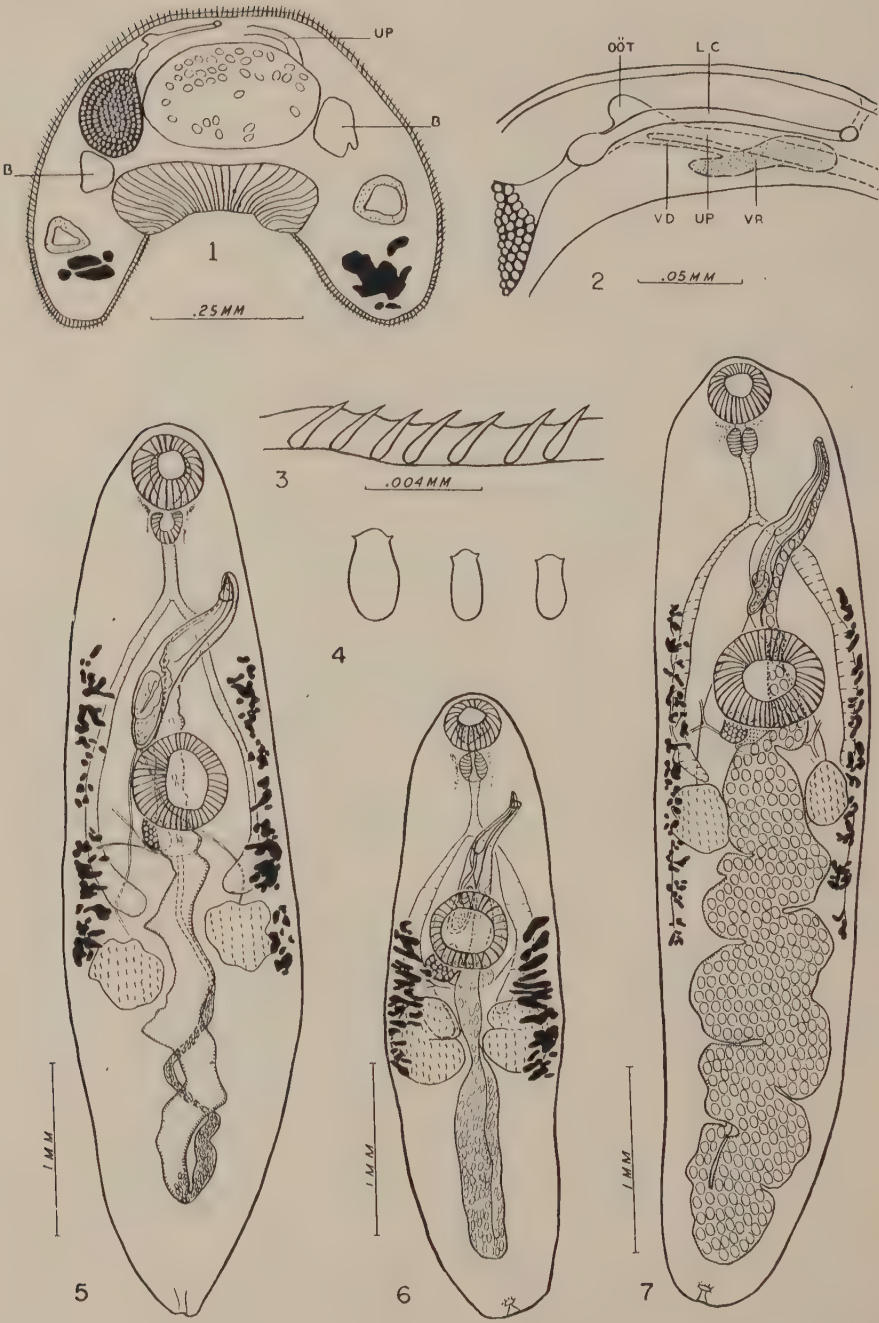 UP
B
B
1
.25MM
OÖT
L C
VD
UP
VR
2
.05MM
3
.004MM
4
1MM
5
1MM
6
1MM
7